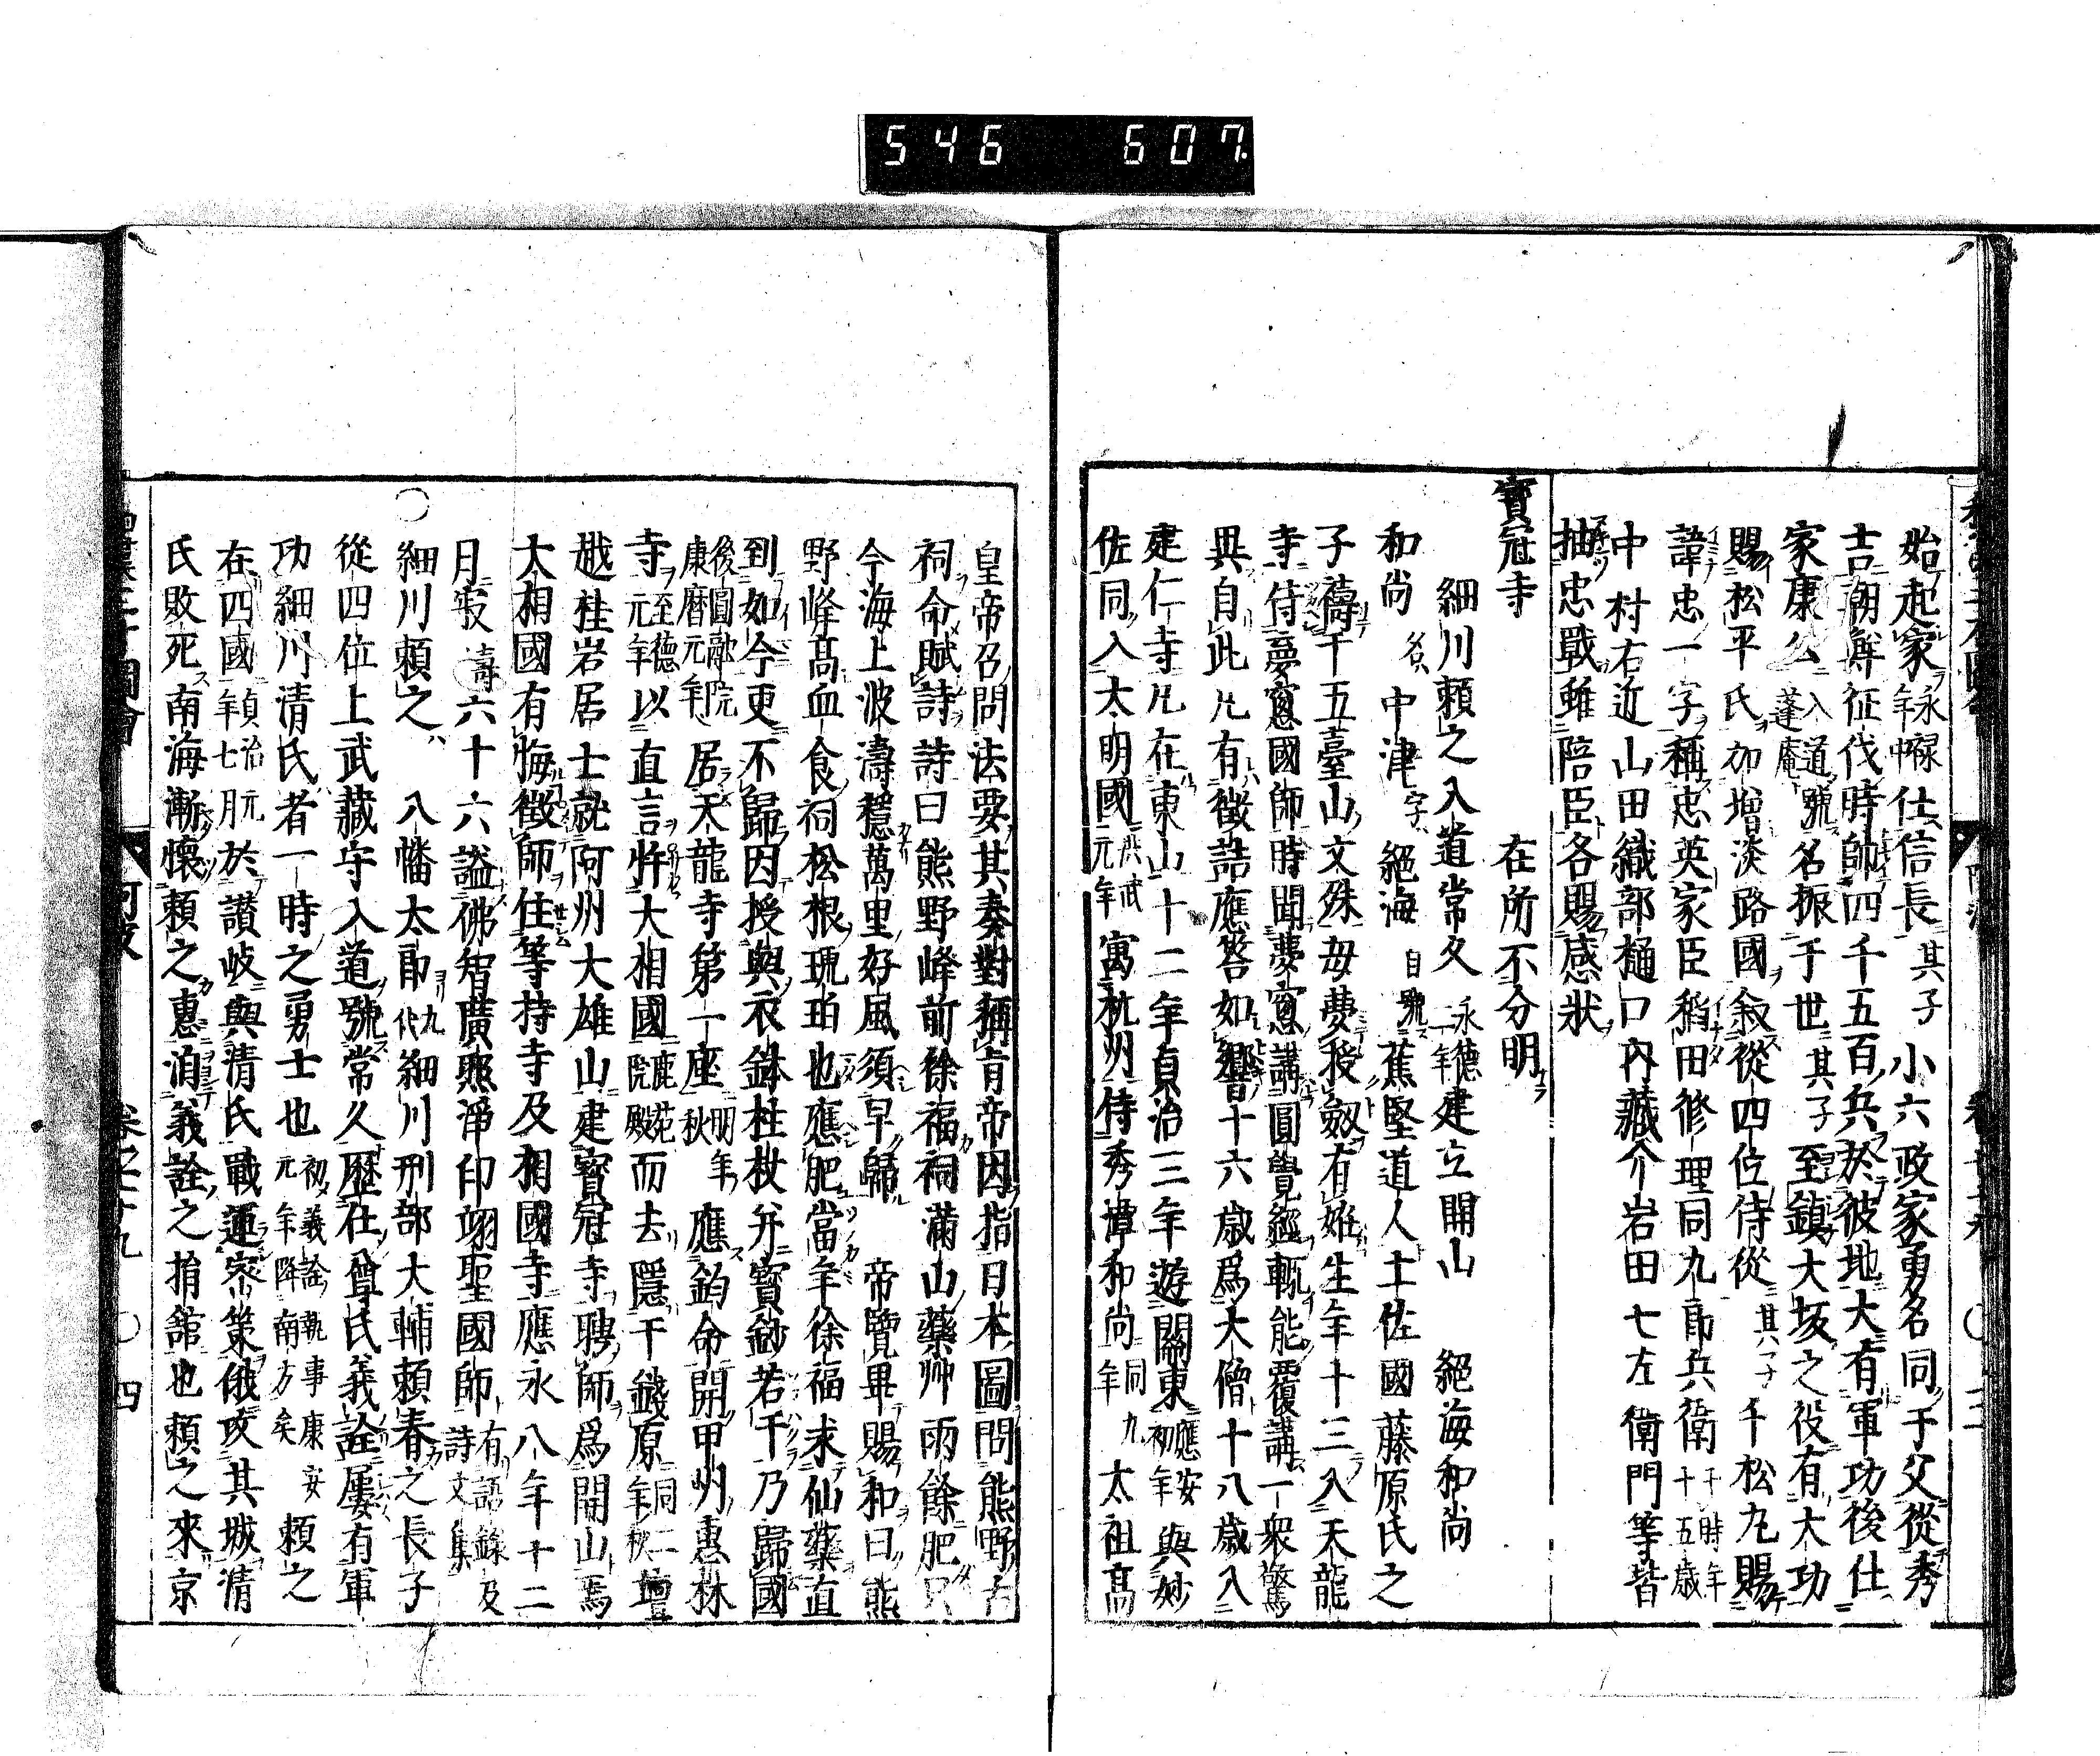 546 607.
始起家永禄年中仕信長其子小六政家勇名同于父從秀
吉朝鮮征伐時帥四千五百兵於彼地大有軍功後仕
家康公入道號蓬庵名振于世其子至鎮大坂之役有大功
賜松平氏加增淡路國叙從四位侍從其子千松丸賜
諱忠一字稱忠英家臣稻田修理同九郎兵衛于時年十五歳
中村右近山田織部樋口内藏介岩田七左衛門等皆
抽忠戰雖陪臣各賜感狀
寶冠寺 在所不分明
細川頼之入道常久永德一年建立開山 絕海和尚
和尚名中津字絕海自號蕉堅道人土佐國藤原氏之
子禱于五臺山文殊母夢授劔有娠生年十三入天龍
寺侍夢窻國師時聞夢窻講圓覺經輙能覆講一衆驚
異自此凡有徵詰應答如響十六歳爲大僧十八歳入
建仁寺凡在東山十二年貞治三年遊關東應安初年與妙
佐同入大明國洪武元年寓杭州侍秀𫞀和尚同九年太祖高
皇帝召問法要其奏對稱旨帝因指日本圖問熊野古
祠命賦詩詩曰熊野峰前徐福祠滿山藥艸雨餘肥只
今海上波濤穩萬里好風須早歸 帝覽畢賜和曰熊
野峰高血食祠松根琥珀也應肥當年徐福求仙藥直
到如今更不歸因授與衣鉢柱杖并寶鈔若干乃歸國
後圓融院康暦元年居天龍寺第一座明年秋應鈞命開甲州惠林
寺至德元年以直言忤大相國鹿苑院殿而去隱于錢原同二年秋壇
越桂岩居士就阿州大雄山建寶冠寺聘師爲開山焉
大相國有悔徵師住等持寺及相國寺應永八年十二
月寂壽六十六謚佛智廣照淨印翊聖國師有語錄及詩文集
○細川頼之 八幡太郎九代細川刑部大輔頼春之長子
從四位上武藏守入道號常久歷仕尊氏義詮屢有軍
功細川清氏者一時之勇士也初義詮執事康安元年降南方矣頼之
在四國貞治元年七月於讃岐與清氏戰運密策俄攻其城清
氏敗死南海漸懷頼之惠洎義詮之捐舘也頼之來京
阿波 卷之七十九 ○四